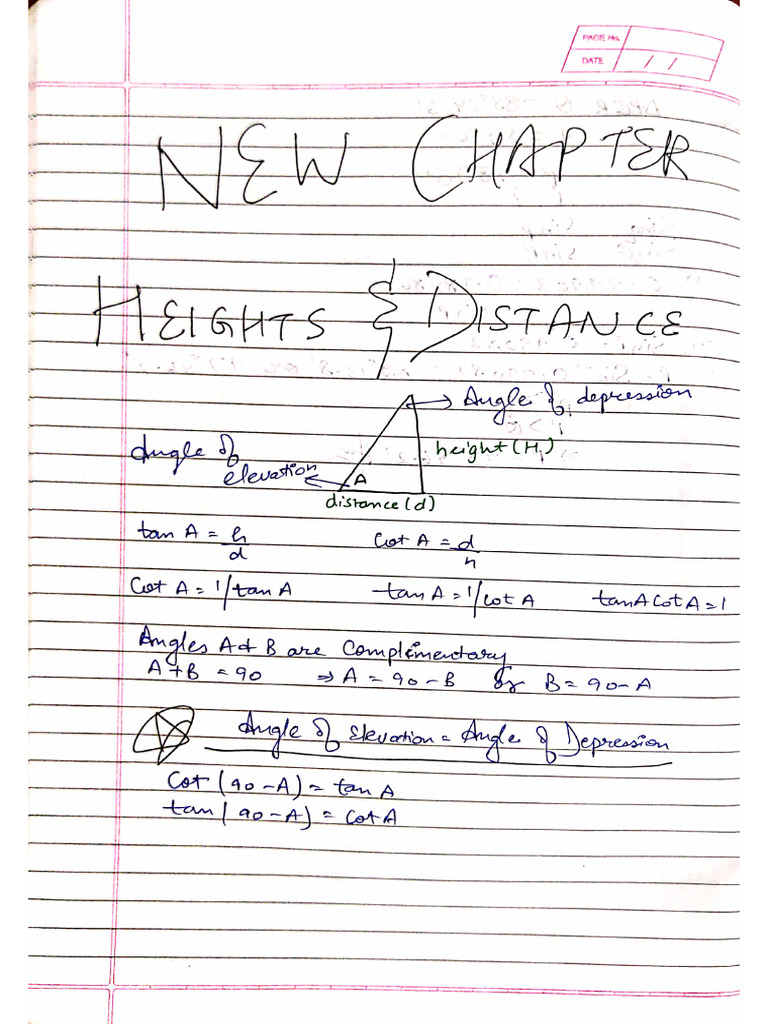 PAGE No.
DATE / /
NEW CHAPTER
HEIGHTS & DISTANCE
→ Angle of depression
height (H)
Angle of
elevation
A
distance (d)
tan A = h/d    Cot A = d/h
Cot A = 1/tan A    tan A = 1/cot A    tanA cotA = 1
Angles A & B are Complimentary
A+B = 90 ⇒ A = 90 - B or B = 90 - A
Angle of Elevation = Angle of Depression
Cot (90 - A) = tan A
tan (90 - A) = cot A